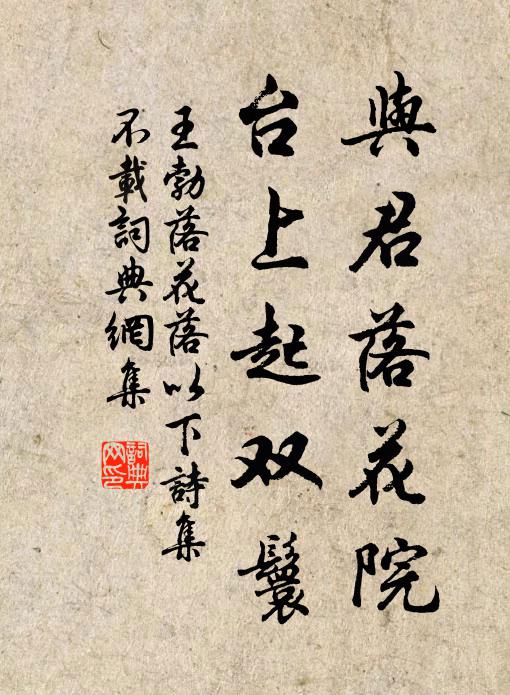 與君落花院
台上起双鬟
王勃落花落以下詩集
不載詞典網集
詞典网印